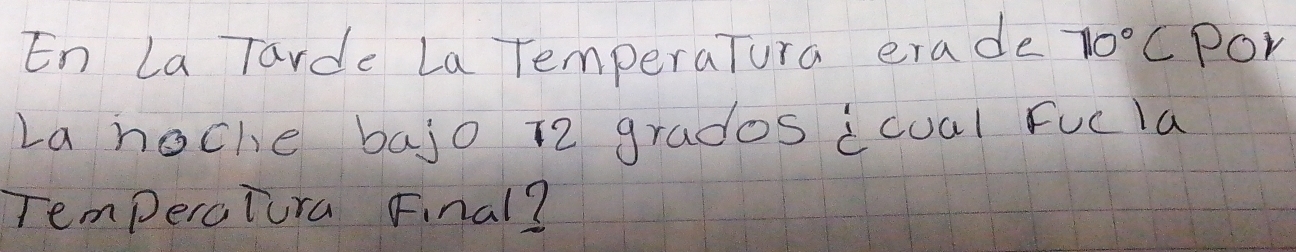 En La Tarde La Temperatura era de 10°C Por
La noche bajo 12 grados ¿cual Fue la
Temperatura Final?